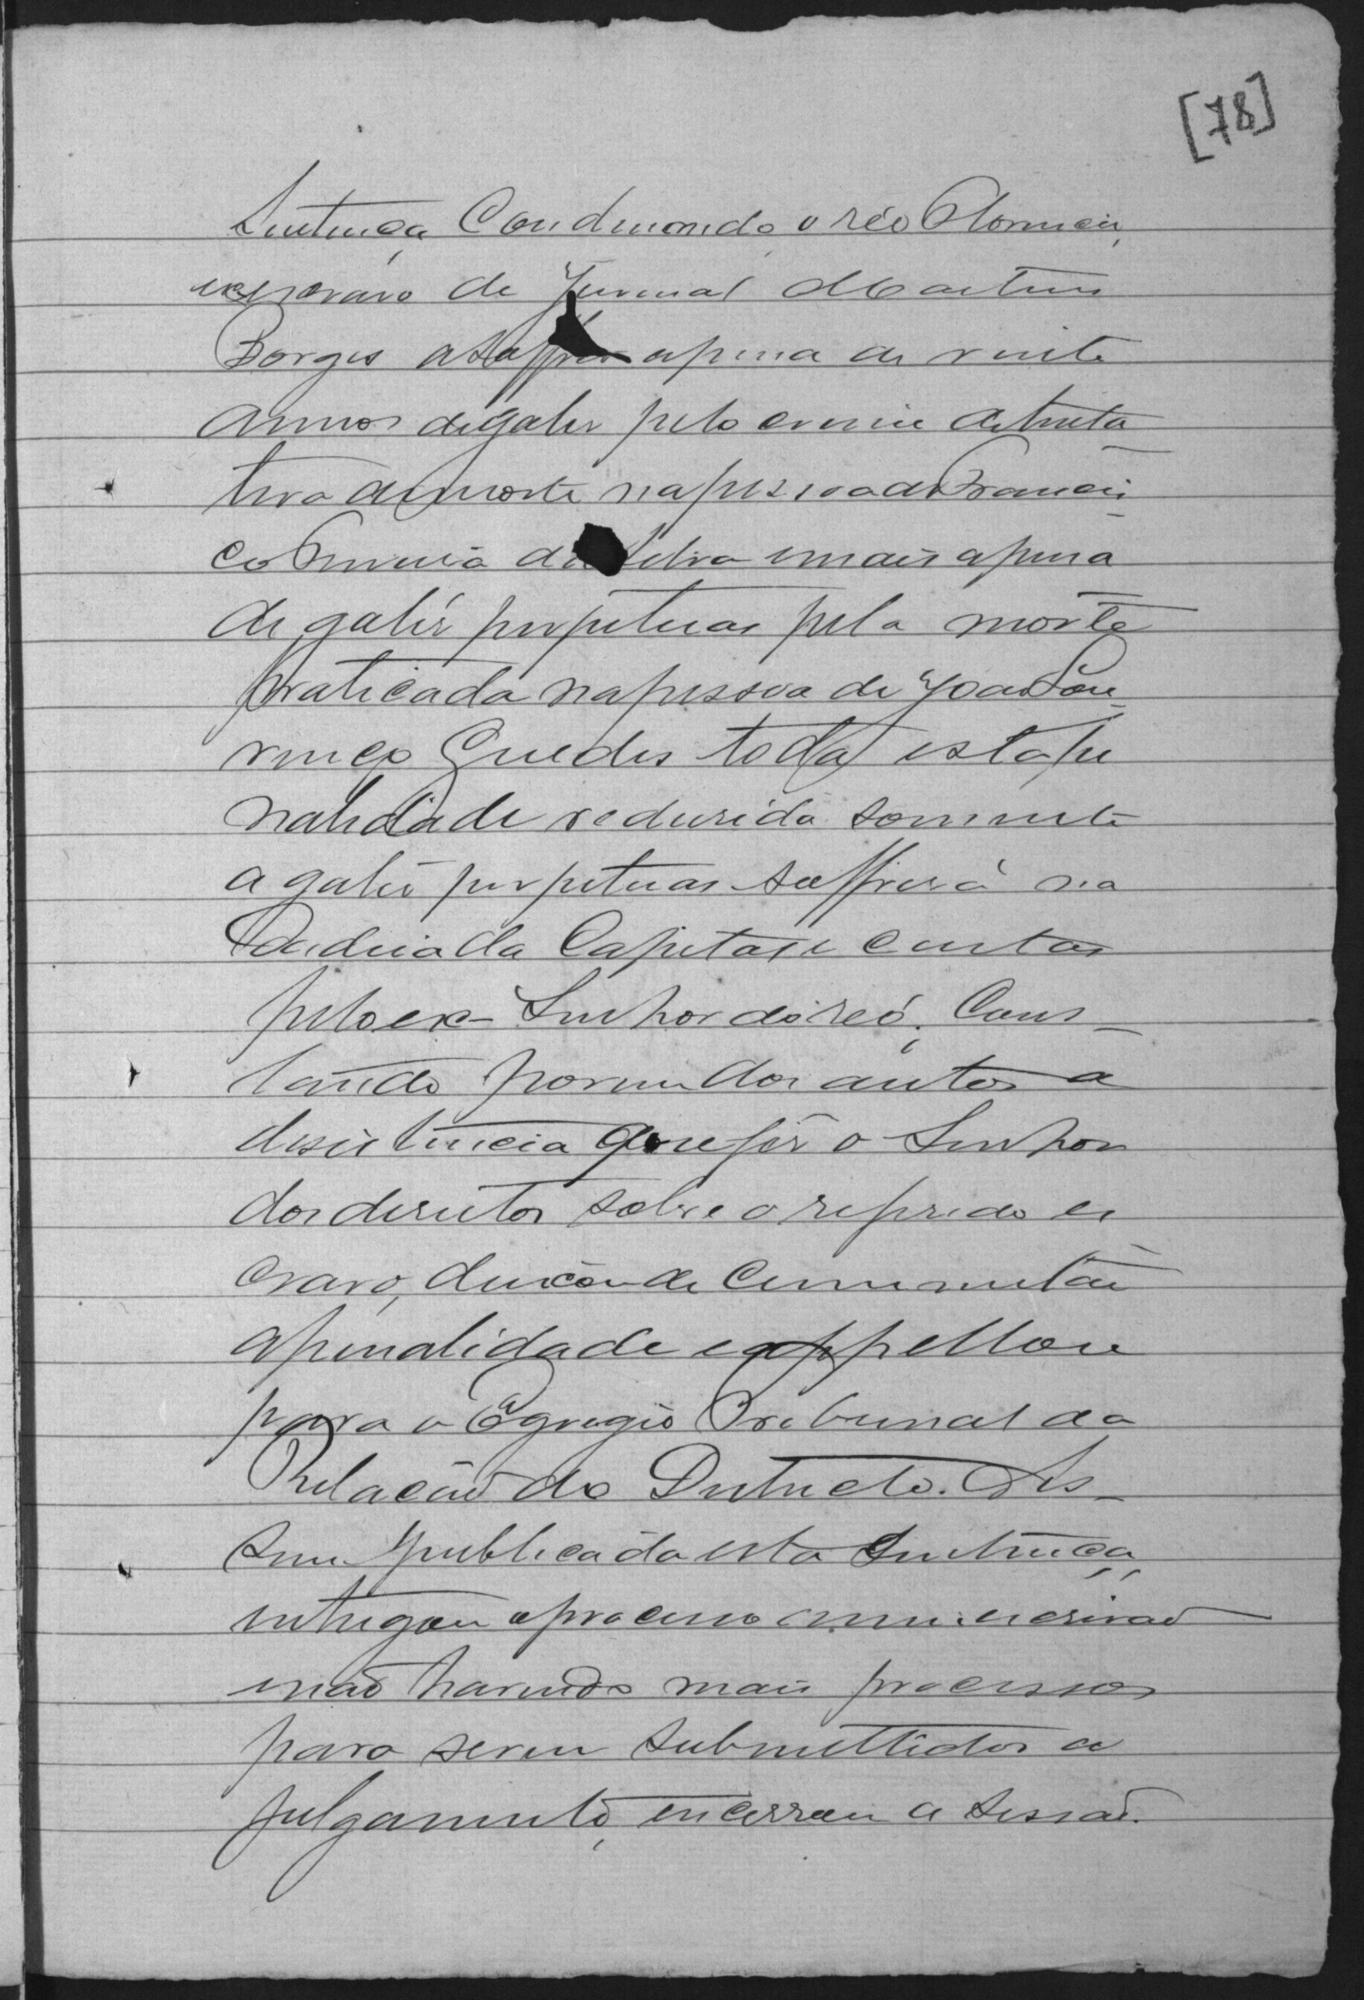 [78]
Sentença Condenando o réo Florencio,
escravo de Juvenal Martins
Borges a soffrer a pena de vinte
annos de galés pelo crime de tenta
tiva de morte na pessoa de Francis
co Pereira da Silva e mais a pena
de galés perpetuas pela morte
praticada na pessoa de João Lou
renço Guedes toda esta pe
nalidade redusida somente
a galés perpetuas soffrerá na
Cadeia da Capital e custas
pelo ex-Senhor do réo. Cons-
tando porem dos autos a
desistencia que fes o Senhor
dos direitos sobre o referido es
cravo, deixou de Commutar
a penalidade e appellou
para o Egregio Tribunal da
Relação do Districto. As-
sim publicada esta Sentença,
entregou o processo a mim escrivão
e não havendo mais processos
para serem submettidos a
julgamento, encerrou a sessão.